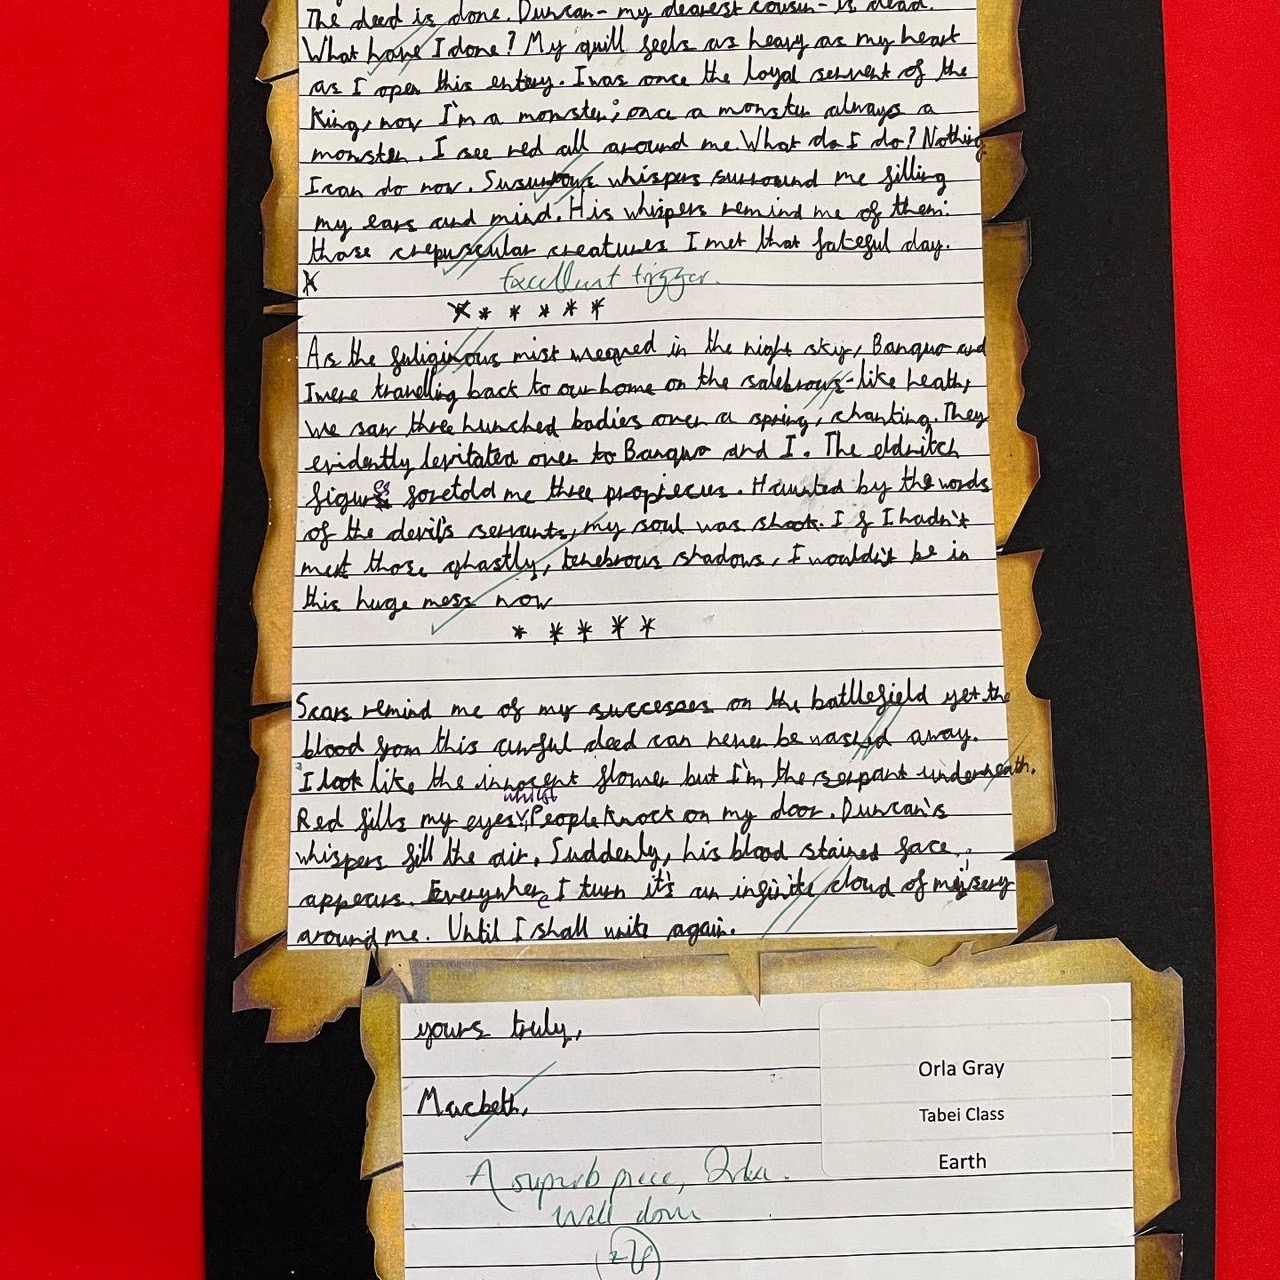 The deed is done. Duncan - my dearest cousin - is dead.
What have I done? My quill feels as heavy as my heart
as I open this entry. I was once the loyal servent of the
King, now I'm a monster; once a monster always a
monster. I see red all around me. What do I do? Nothing
I can do now. Susurrous whispers surround me filling
my ears and mind. His whispers remind me of them:
those crepuscular creatures I met that fateful day.
Excellent trigger.
* * * * * *
As the fuliginous mist weaved in the night sky, Banquo and
I were travelling back to our home on the salebrous-like heath,
we saw three hunched bodies over a spring, chanting. They
evidently levitated over to Banquo and I. The eldritch
figures foretold me three propiecies. Haunted by the words
of the devil's servants, my soul was shook. If I hadn't
met those ghastly, tenebrous shadows, I wouldn't be in
this huge mess now
* * * * *
Scars remind me of my successes on the battlefield yet the
blood from this awful deed can never be washed away.
I look like the innocent flower but I'm the serpant underneath.
Red fills my eyes whilst People knock on my door. Duncan's
whispers fill the air. Suddenly, his blood stained face
appears. Everywhere I turn it's an infinite cloud of misery
around me. Until I shall write again.
yours truly,
Macbeth,
A superb piece, Orla.
Well done
Orla Gray
Tabei Class
Earth